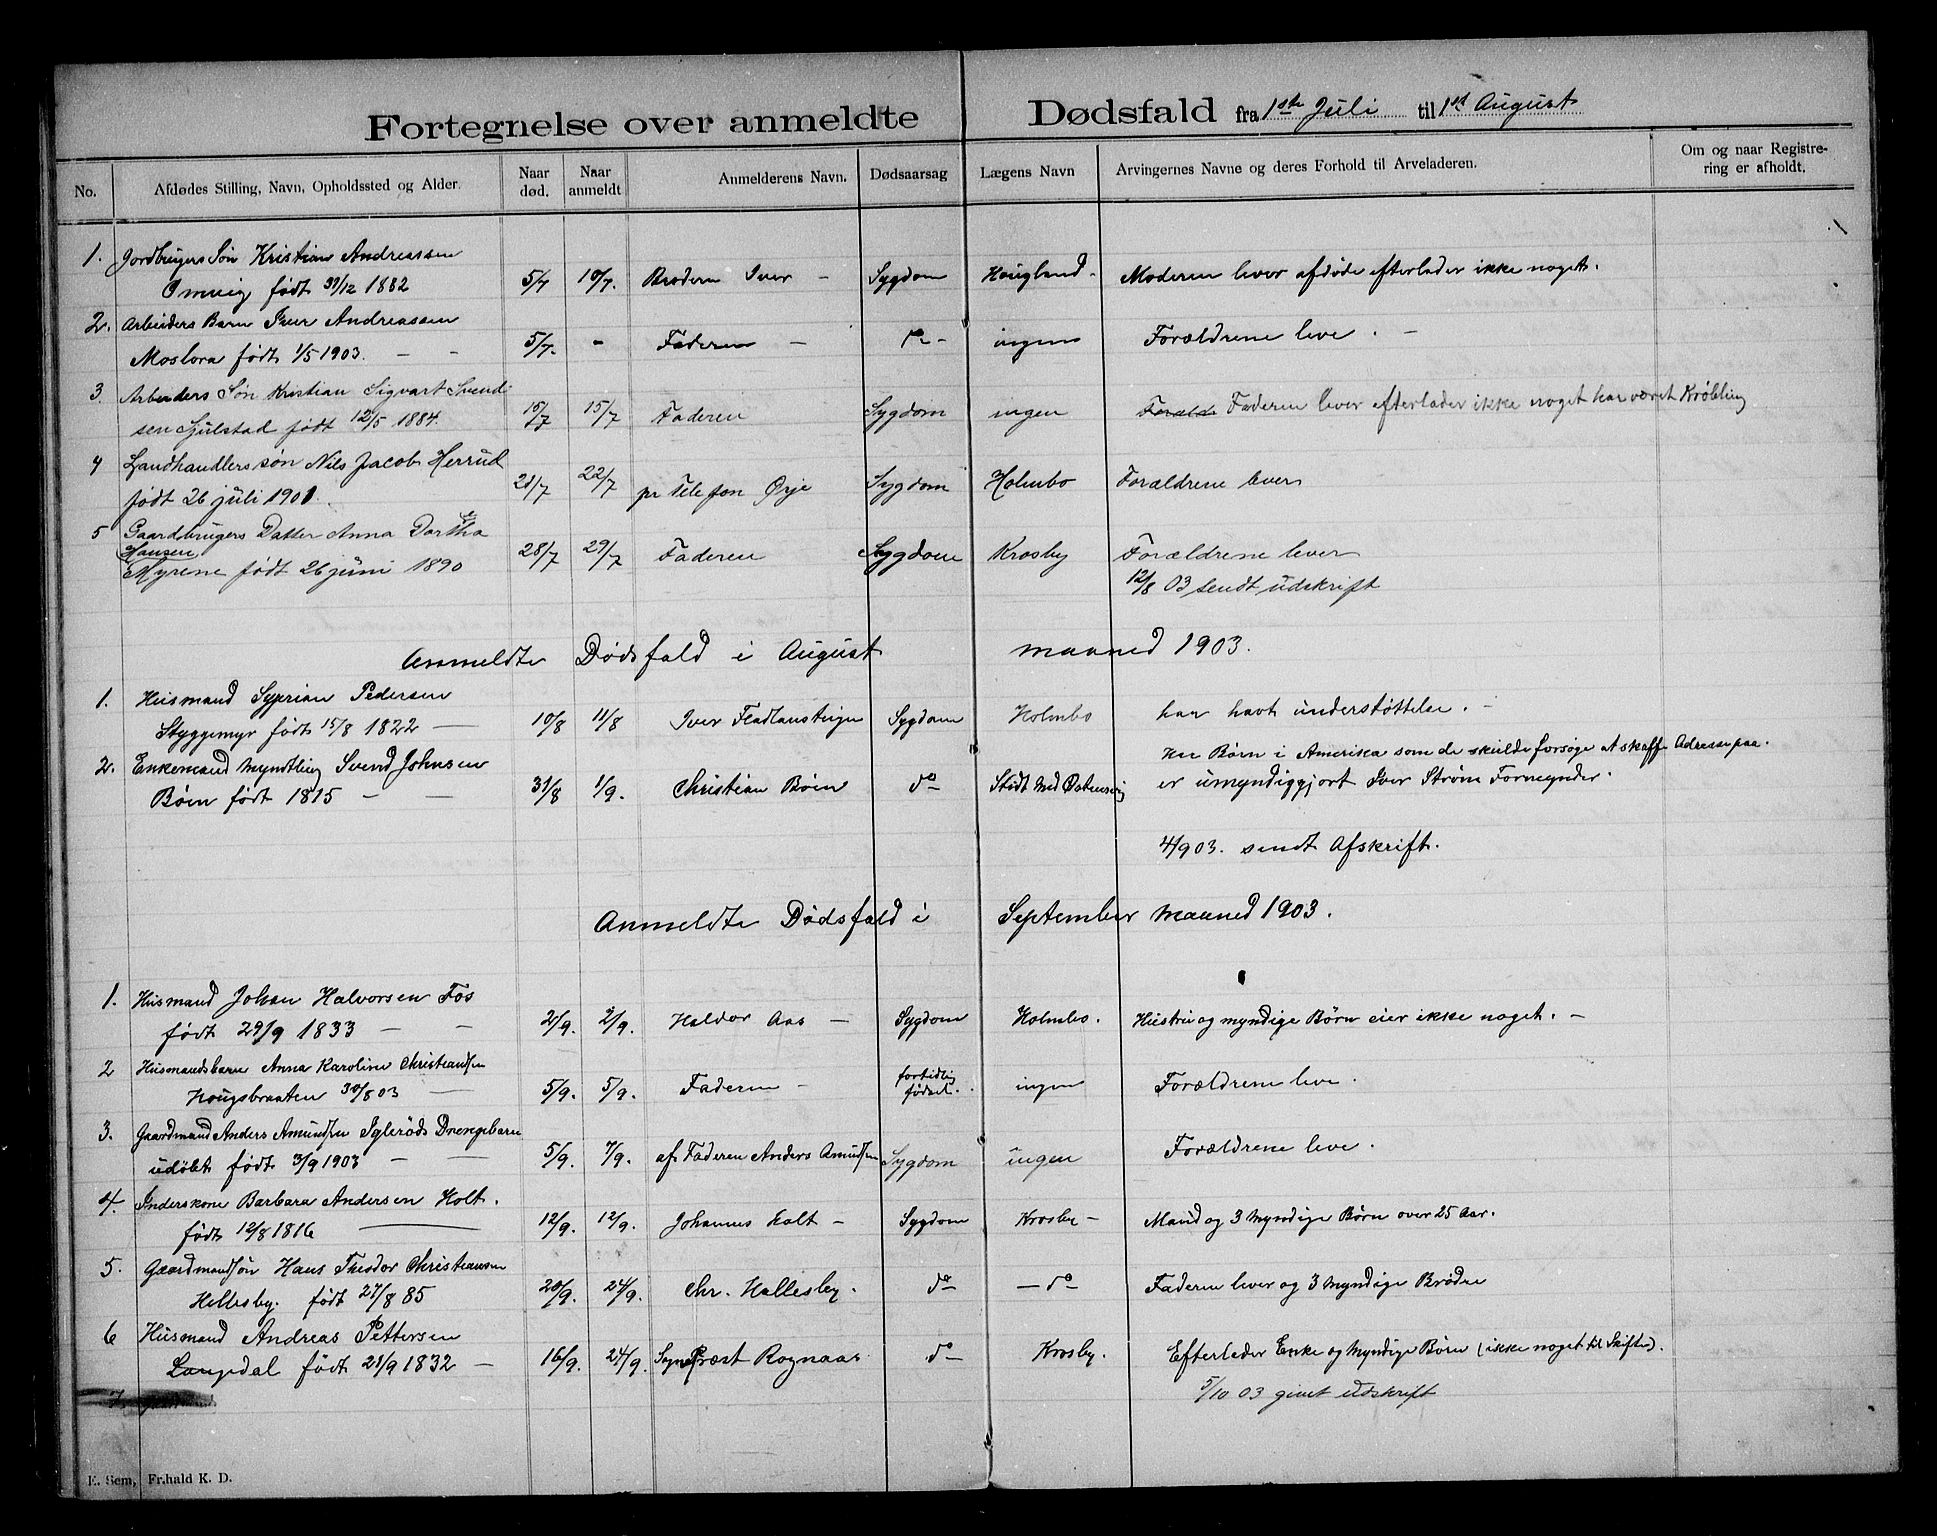 Fortegnelse over anmeldte Dødsfald fra 1ste Juli til 1st August
No. Afdødes Stilling, Navn, Opholdssted og Alder. Naar død. Naar anmeldt Anmelderens Navn. Dødsaarsag Lægens Navn Arvingernes Navne og deres Forhold til Arveladeren. Om og naar Registrering er afholdt.
1. Jordbrugers Søn Kristian Andreassen
Omvig født 31/12 1882 5/7 10/7. Broderen Iver – Sygdom Hougland - Moderen lever afdøde efterlader ikke noget.
2. Arbeiders Barn Iver Andreassen
Moslora født 1/5 1903. — — 5/7. - Faderen — do - ingen Forældrene leve . –
3. Arbeiders Søn Kristian Sigvart Svend-
sen Sjulstad født 12/5 1884. 15/7 15/7 Faderen Sygdom ingen Foræld. Faderen lever efterlader ikke noget har været Krøbling
4 Landhandlers søn Nils Jacob Herrud
født 26 juli 1901. 21/7 22/7 pr Telefon Ørje Sygdom Holmbo Forældrene lever
5 Gaardbrugers Datter Anna Dorthea
Hansen
Myrene født 26 juni 1890 28/7 29/7 Faderen Sygdom Krosby Forældrene lever
12/8 03 sendt udskrift
Anmeldte Dødsfald i August maaned 1903.
1. Husmand Syprian Pedersen
Styggemyr født 15/8 1822 — 10/8 11/8 Iver Sygdom Holmbo har havt understøttelse. –
har Børn i Amerika som de skulde forsøge at skaffe Adresse paa.
2. Enkemand Myndtling Svend Johnsen
Bøen født 1815 — — 31/8 1/9. Christian Bøen do Stødt Med Østensvig er umyndiggjort Iver Strøm Formynder.
4/9 03. sendt Afskrift.
Anmeldte Dødsfald i September Maaned 1903.
1. Husmand Johan Halvorsen Fos
født 29/9 1833 — — 2/9. 2/9. Haldor Aas — Sygdom Holmbo. Hustru og myndige Børn eier ikke noget. –
2 Husmandsbarn Anna Karoline Christiansen
Hougsbraaten 30/8 03 — 5/9. 5/9. Faderen – fortidlig fødsel. ingen Forældrene leve.
3. Gaardmand Anders Amundsen Iglerøds Drengebarn
udøbt født 3/9 1903 — — 5/9. 7/9. af Faderen Anders Amundsen Sygdom ingen Forældrene leve.
4. Inderskone Barbara Andersen Holt.
født 12/8 1816 — 12/9. 12/9. Johannes Holt – Sygdom Krosby – Mand og 3 Myndige Børn over 25 Aar.
5. Gaardmandsøn Hans Theodor Christiansen
Hellesby. født 27/8 85 20/9. 24/9. Chr. Hallesby. do — do Faderen lever og 3 Myndige Brødre
6 Husmand Andreas Pettersen
Langedal født 21/9 1832 — 16/9. 24/9. Sognepræst Rognaas do Krosby. Efterlader Enke og Myndige Børn (ikke noget til Skifte).
5/10 03 givet udskrift
7.
E. Sem, Fr.hald K. D.